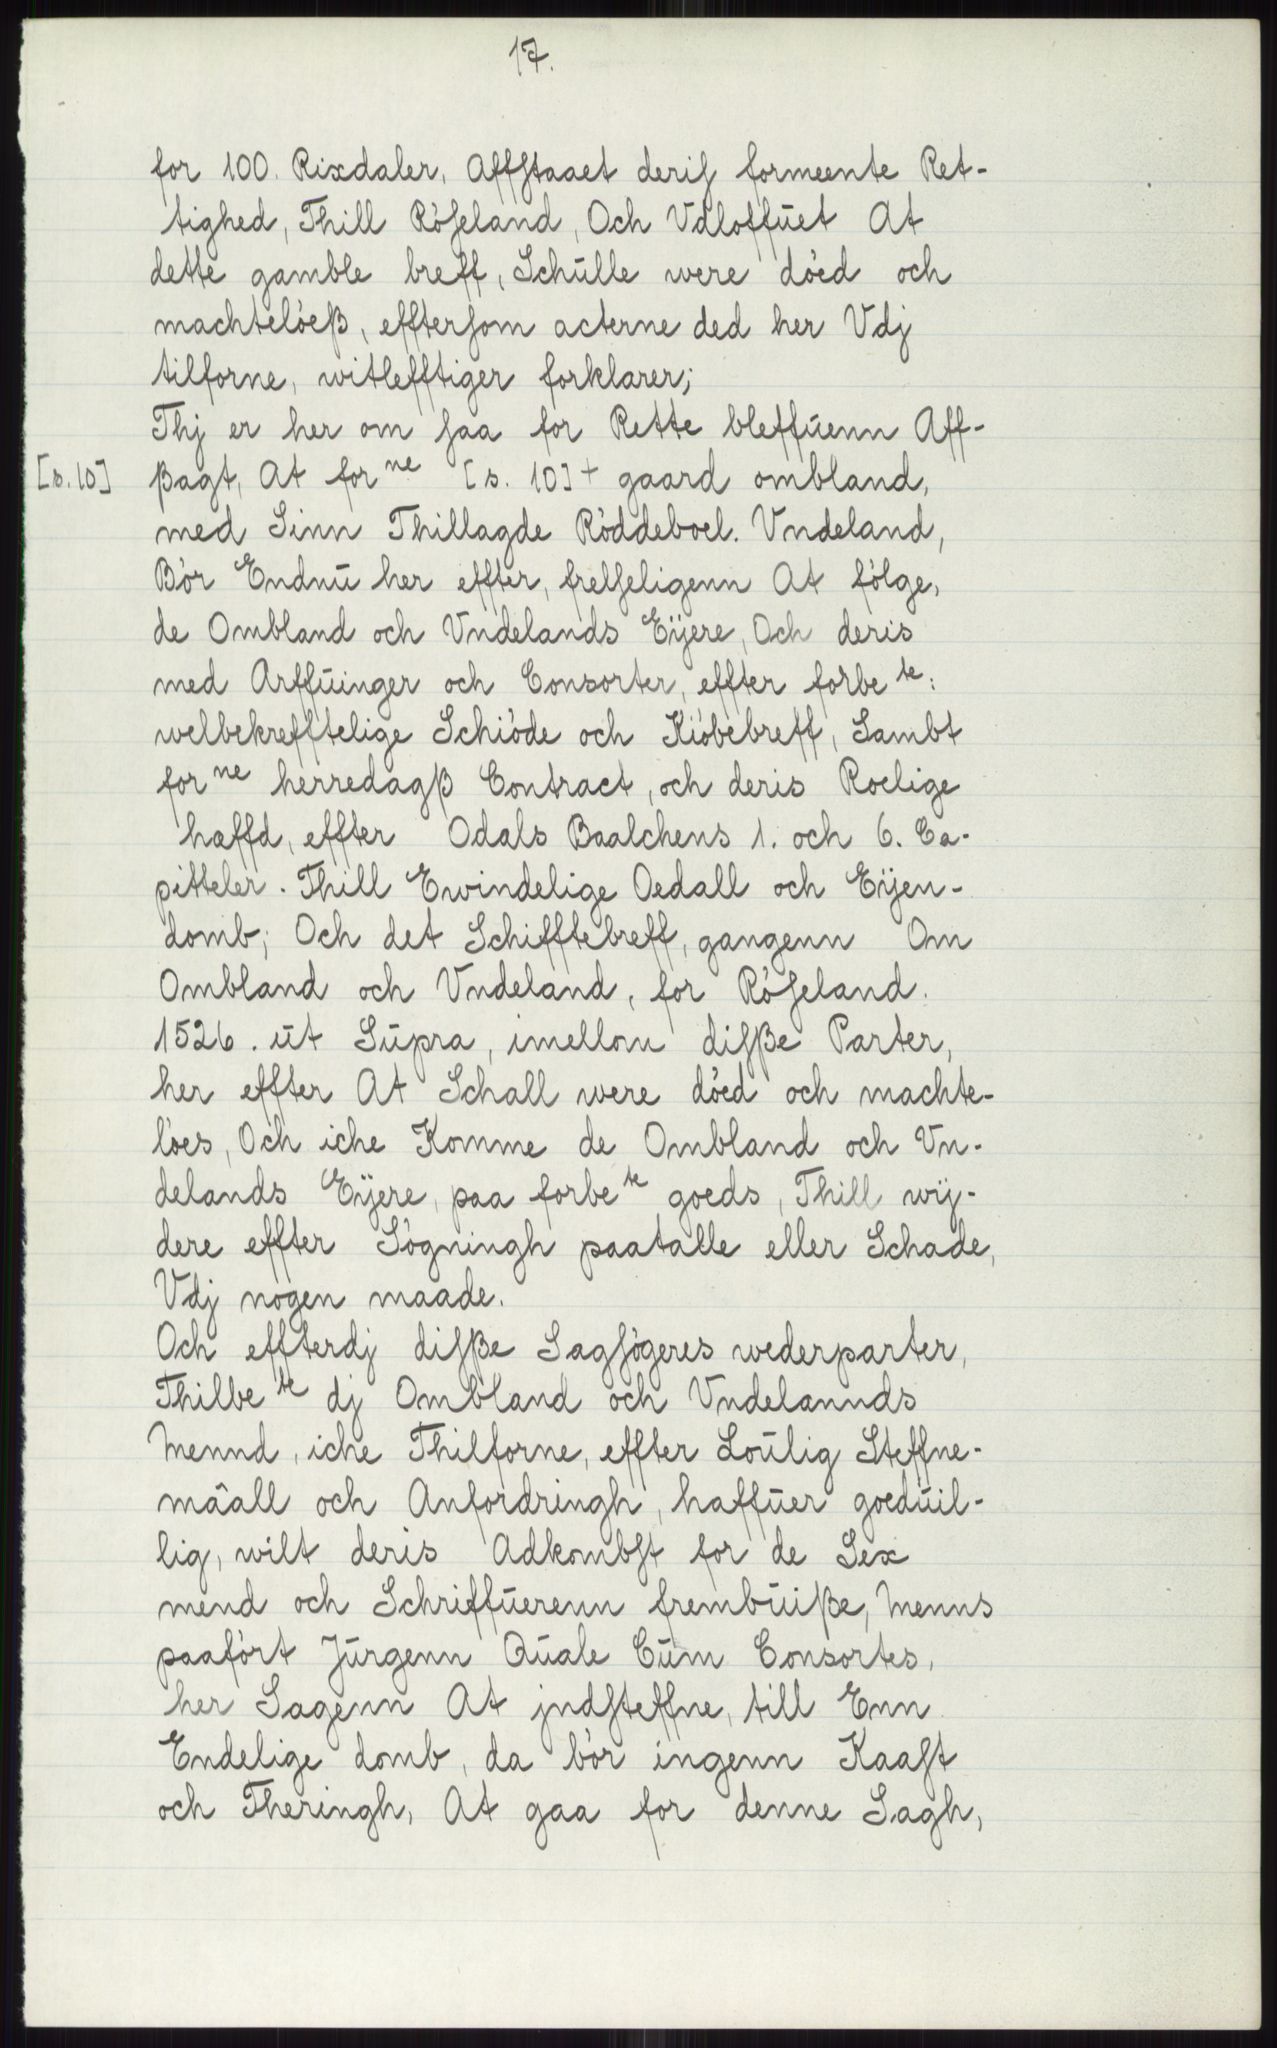 17.
for 100. Rixdaler, Affstaaet deris formeente Ret-
tighed, Thill Röseland, Och Vdloffuet At
dette gamble breff, Schulle were döed och
machtelöeß, efftersom acterne ded her Vdj
tilforne, witlefftiger forklarer;
Thj er her om saa for Rette bleffuenn Aff-
[s. 10] ßagt, At for ne [s. 10] + gaard ombland,
med Sinn Thillagde Röddeboel. Vndeland,
Bör Endnu her effter, frelseligenn At fölge,
de Ombland och Vndelands Eÿere, Och deris
med Arffuinger och Consorter, effter forbe te:
welbekrefftelige Schiöde och Kiöbebreff, Sambt
for ne herredagß Contract, och deris Roelige
hæffd, effter Odals Baalchens 1. och 6. Ca-
pitteler. Thill Ewindelige Oedall och Eÿen-
domb; Och det Schifftebreff, gangenn Om
Ombland och Vndeland, for Röseland.
1526. ut Supra, imellom disße Parter,
her effter At Schall were döed och machte-
löes, Och iche Komme de Ombland och Vn-
delands Eÿere, paa forbe te goeds, Thill wÿ-
dere effter Sögningh paatalle eller Schade,
Vdj nogen maade.
Och effterdj disße Sagsögeres wederparter,
Thilbe te dj Ombland och Vndelannds
Mennd, iche Thilforne, effter Loulig Steffne-
måall och Anfordringh, haffuer goeduil-
lig, wilt deris Adkombst for de Sex
mend och Schriffuerenn frembuiße, Menns
paafört Jürgenn Quale Cum Consortes,
her Sagenn At jndsteffne, till Enn
Endelige domb, da bör ingenn Kaast
och Theringh, At gaa for denne Sagh,